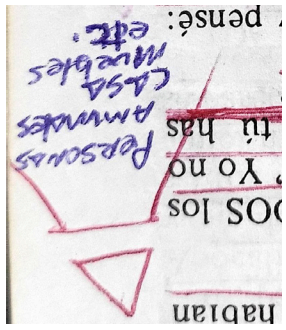 habian
DOS los
? Yo no
tú has
y pensé:
PERSONAS
ANIMALES
CASA
MUEBLES
etc.